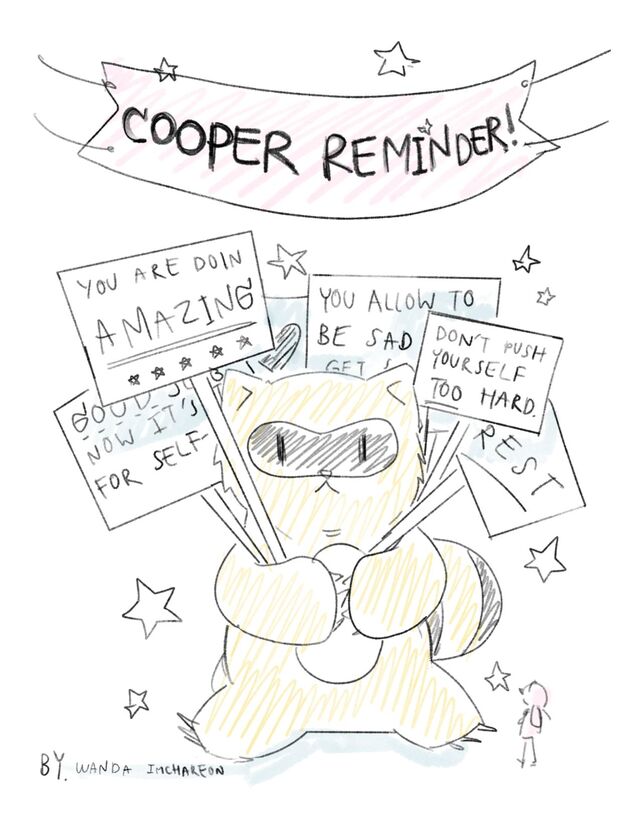 COOPER REMINDER!
YOU ARE DOIN
AMAZING
YOU ALLOW TO
BE SAD
GET
DON'T PUSH
YOURSELF
TOO HARD.
GOOD
NOW IT'S
FOR SELF-
REST
BY. WANDA IMCHAREON